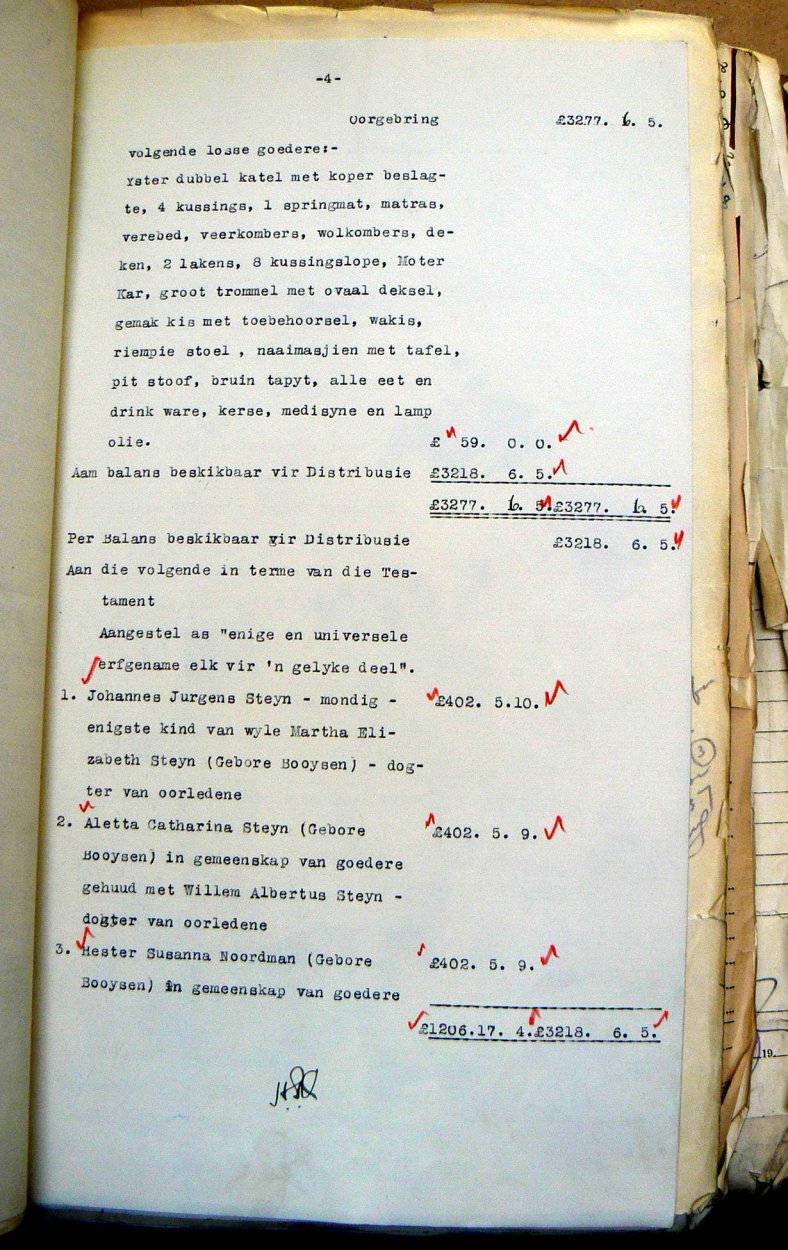 -4-
oorgebring £3277. 6. 5.
volgende losse goedere:-
Yster dubbel katel met koper beslag-
te, 4 kussings, 1 springmat, matras,
verebed, veerkombers, wolkombers, de-
ken, 2 lakens, 8 kussingslope, Moter
Kar, groot trommel met ovaal deksel,
gemak kis met toebehoorsel, wakis,
riempie stoel , naaimasjien met tafel,
pit stoof, bruin tapyt, alle eet en
drink ware, kerse, medisyne en lamp
olie. £ 59. 0. 0.
Aam balans beskikbaar vir Distribusie £3218. 6. 5.
£3277. 6. 5. £3277. 6. 5.
Per Balans beskikbaar vir Distribusie £3218. 6. 5.
Aan die volgende in terme van die Tes-
tament
Aangestel as "enige en universele
erfgename elk vir 'n gelyke deel".
1. Johannes Jurgens Steyn - mondig - £402. 5.10.
enigste kind van wyle Martha Eli-
zabeth Steyn (Gebore Booysen) - dog-
ter van oorledene
2. Aletta Catharina Steyn (Gebore £402. 5. 9.
Booysen) in gemeenskap van goedere
gehuud met Willem Albertus Steyn -
dogter van oorledene
3. Hester Susanna Noordman (Gebore £402. 5. 9.
Booysen) in gemeenskap van goedere
£1206.17. 4. £3218. 6. 5.
19